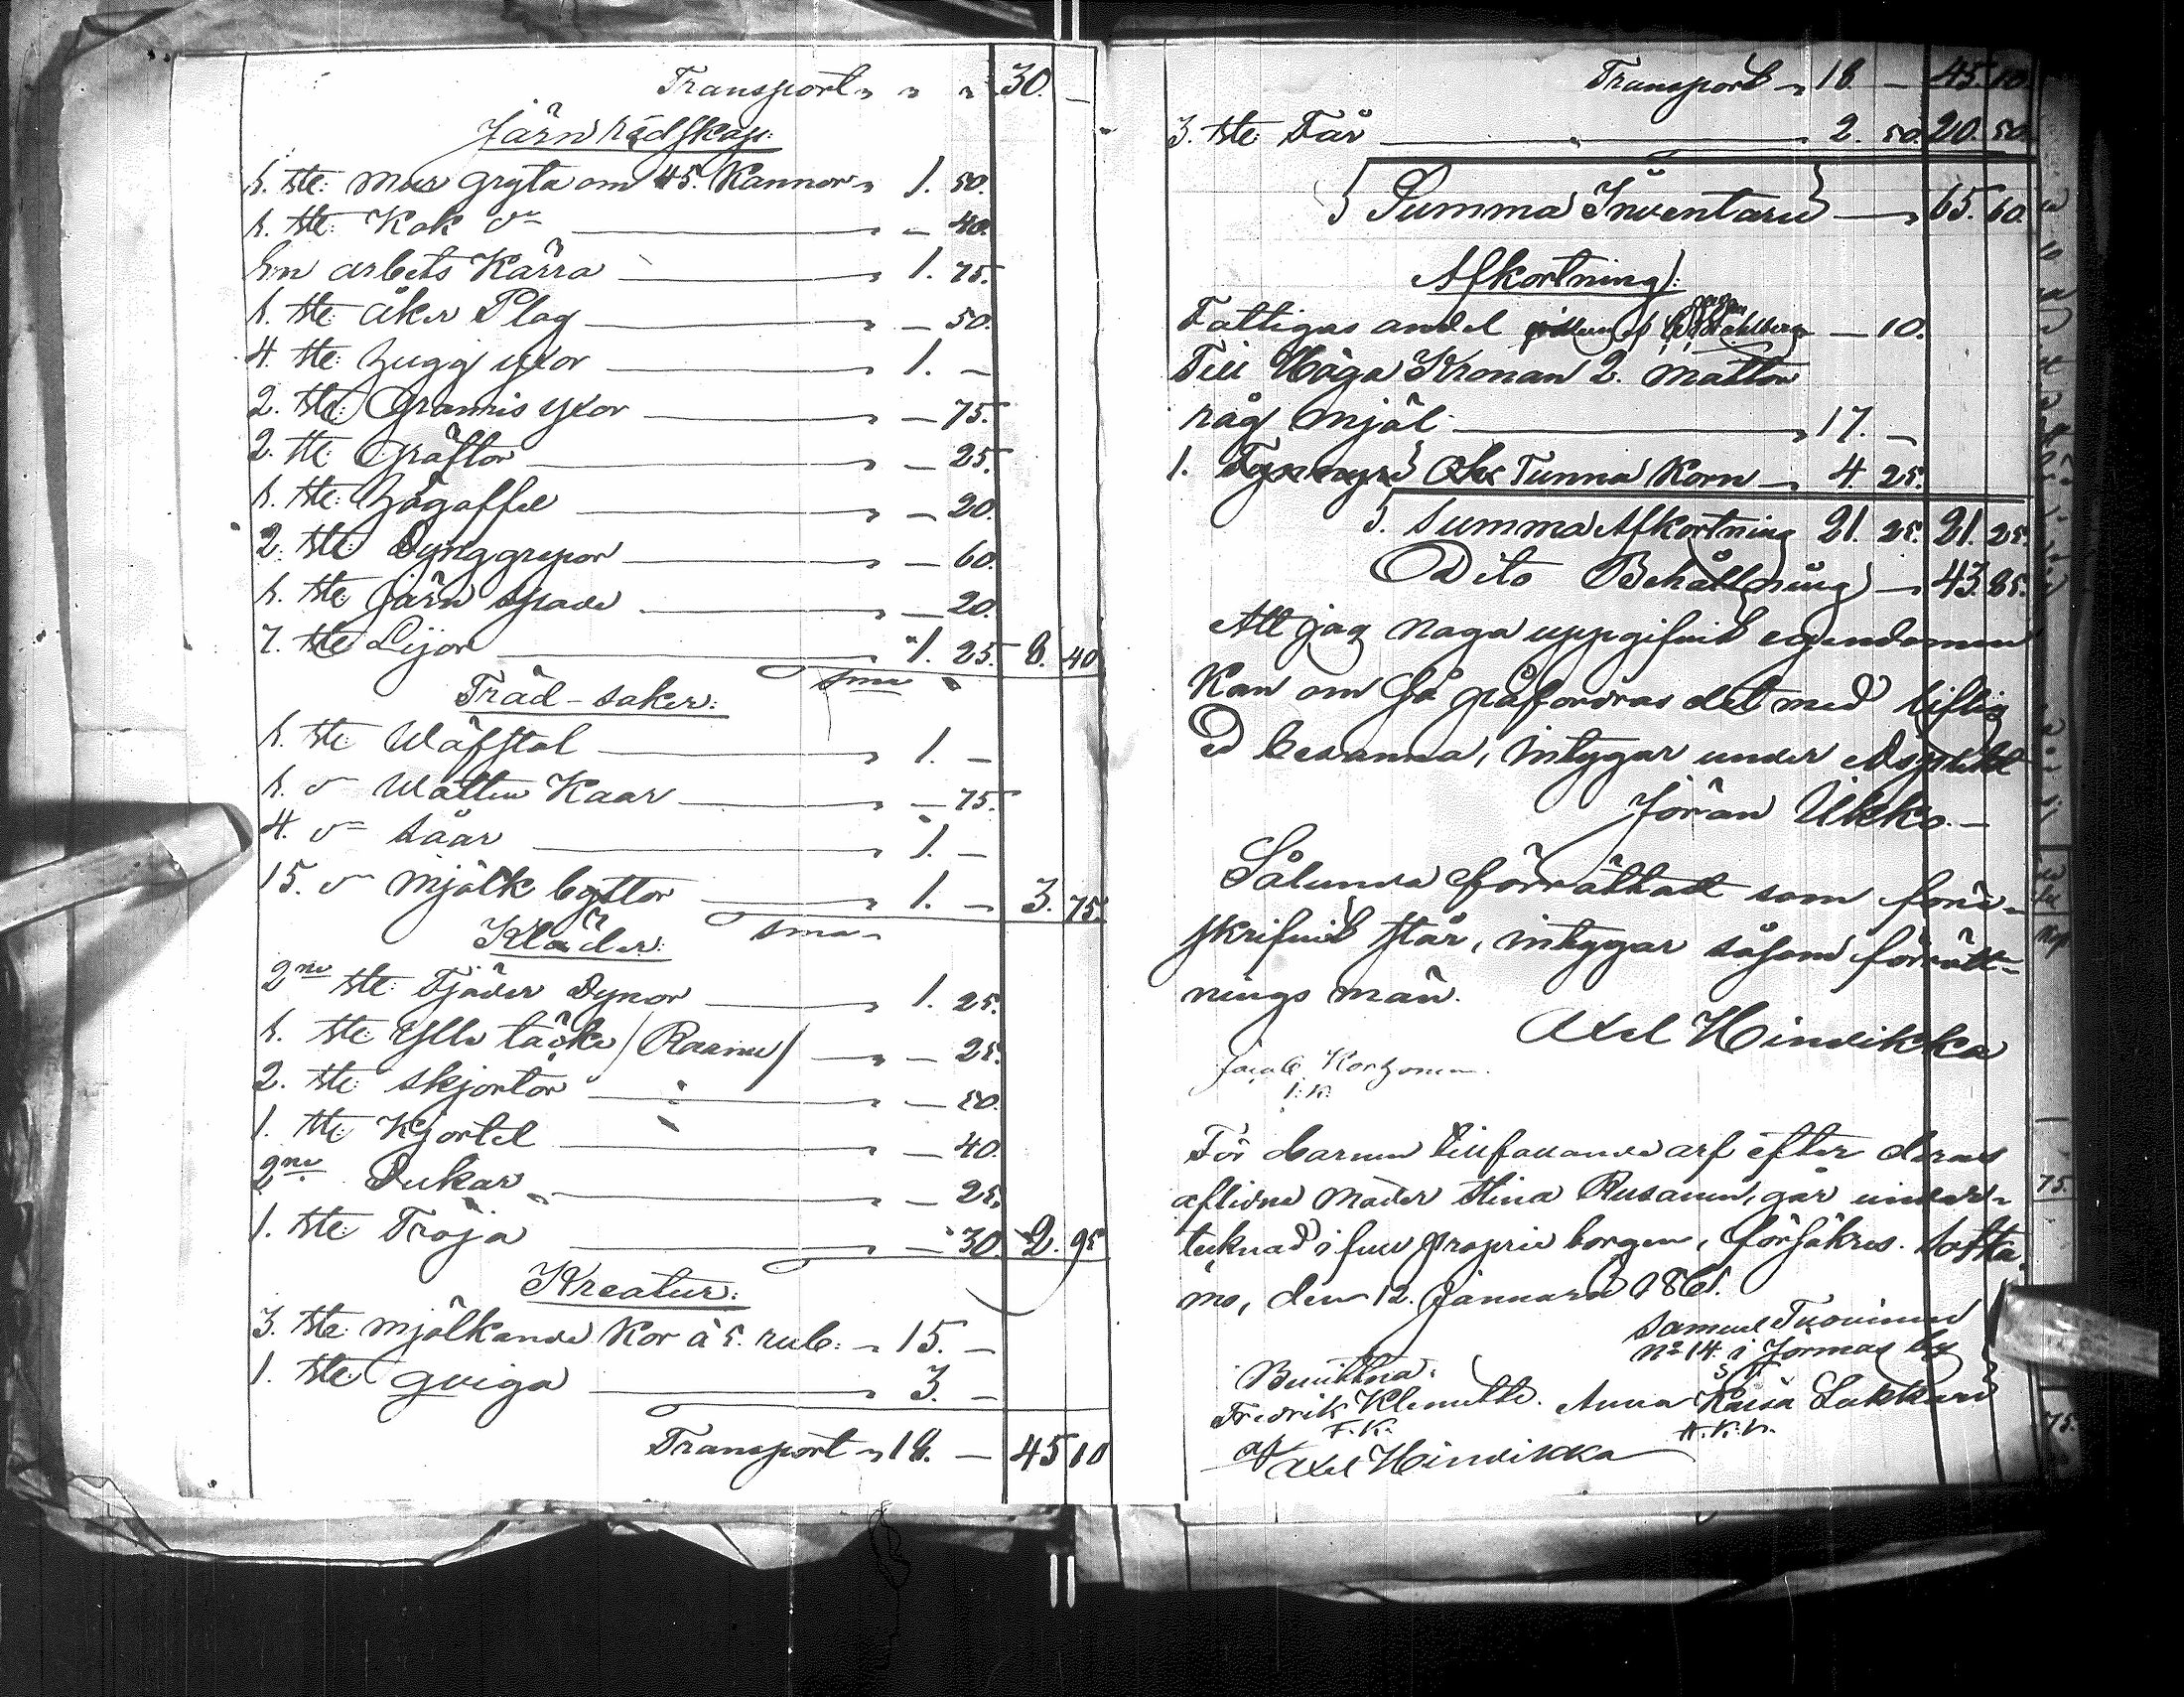 Transport „ „ „ 30. —
Järnrädskap:
1. ste: mur gryta om 45. Kannor „ 1. 50.
1. ste: Kok do — 40.
En arbets Kärra „ 1. 75.
1. ste åker Plog — 50.
4. ste: hugg yxor „ 1. —
2. ste: yxor — 75.
2. ste: Gräftor — 25.
1. ste: högaffel — 20.
2. ste: Dynggrepor — 60.
1. ste järn spade — 20.
7. ste Lijor „ 1. 25. 8. 40
Träd-saker: Sma
1. ste: Wäfstol „ 1. —
1. do Watten Kaar — 75.
4. do såar „ 1. —
15. do mjölk byttor „ 1. — 3. 75.
Kläder: Sma
2ne ste: Fjäder Dynor „ 1. 25.
1. ste: Ylle täcke / Raanu / — 25.
2. ste: skjortor — 50.
1. ste: Kjortel — 40.
2ne Dukar — 25.
1. ste: Tröja — 30. 2. 95
Kreatur:
3. ste: mjölkande Kor à 5. rub: „ 15. —
1. ste: qviga „ 3. —
Transport „ 18. — 45 10
Transport „ 18. — 45. 10.
3. ste: Får 2. 50. 20. 50.
S. Summa Inventarii „ 65. 60.
Afkortning:
Fattigas andel — 10.
Till Höga Kronan 2. mattor
råg mjöl „ 17. —
1. Tunna Korn „ 4. 25.
S. Summa Afkortning 21. 25. 21. 25.
Dito Behållning „ 43. 85.
Att jag noga uppgifvit egendomen
Kan om så påfordras det med liflig
Ed besanna, intygar under Edsplikt
Jöran Ukko.
Sålunda förrättadt som före-
skrifvit står, intygar såsom förrätt-
nings män.
Axel Hindikka
Jacob Korhonen.
J. K.
För barnen tillfallande arf efter deras
aflidne moder Stina Rusanen, går under-
teknad i full proprie borgen, försäkres. Sotka-
mo, den 12. Januari 1861.
Samuel Tuovinen
No 14. i Jormas by
S T
Bevittna:
Fredrik Klemetti. Anna Kaisa Lukkari
F. K. A. K. L.
af Axel Hindikka